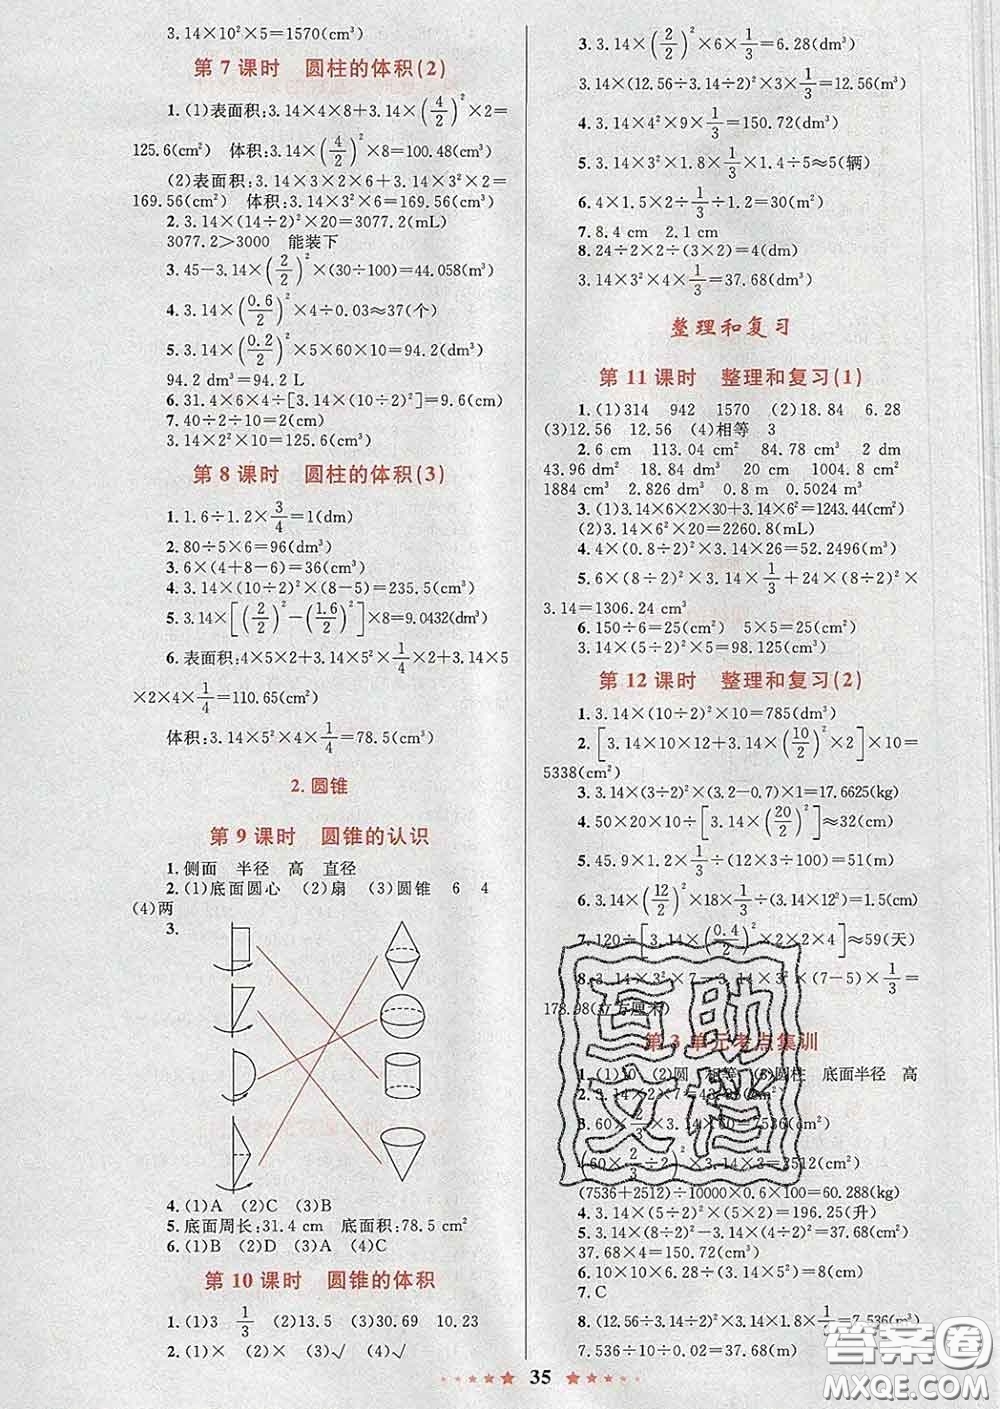 3.14×10²×5=1570(cm³)
第7课时 圆柱的体积(2)
1.(1)表面积:3.14×4×8+3.14×(4/2)²×2=
125.6(cm²) 体积:3.14×(4/2)²×8=100.48(cm³)
(2)表面积:3.14×3×2×6+3.14×3²×2=
169.56(cm²) 体积:3.14×3²×6=169.56(cm³)
2.3.14×(14÷2)²×20=3077.2(mL)
3077.2>3000 能装下
3.45-3.14×(2/2)²×(30÷100)=44.058(m³)
4.3.14×(0.6/2)²×4÷0.03≈37(个)
5.3.14×(0.2/2)²×5×60×10=94.2(dm³)
94.2 dm³=94.2 L
6.31.4×6×4÷[3.14×(10÷2)²]=9.6(cm)
7.40÷2÷10=2(cm)
3.14×2²×10=125.6(cm³)
第8课时 圆柱的体积(3)
1.1.6÷1.2×3/4=1(dm)
2.80÷5×6=96(dm³)
3.6×(4+8-6)=36(cm³)
4.3.14×(10÷2)²×(8-5)=235.5(cm³)
5.3.14×[(2/2)²-(1.6/2)²]×8=9.0432(dm³)
6.表面积:4×5×2+3.14×5²×1/4×2+3.14×5
×2×4×1/4=110.65(cm²)
体积:3.14×5²×4×1/4=78.5(cm³)
2.圆锥
第9课时 圆锥的认识
1.侧面 半径 高 直径
2.(1)底面圆心 (2)扇 (3)圆锥 6 4
(4)两
3.
4.(1)A (2)C (3)A
5.底面周长:31.4 cm 底面积:78.5 cm²
6.(1)B (2)D (3)A (4)C
第10课时 圆锥的体积
1.(1)3 1/3 (2)13.5 (3)30.69 10.23
2.(1)× (2)× (3)√ (4)√
3.3.14×(2/2)²×6×1/3=6.28(dm³)
3.14×(12.56÷3.14÷2)²×3×1/3=12.56(m³)
4.3.14×4²×9×1/3=150.72(dm³)
5.3.14×3²×1.8×1/3×1.4÷5≈5(辆)
6.4×1.5×2÷1/3÷1.2=30(m²)
7.8.4 cm 2.1 cm
8.24÷2×2÷(3×2)=4(dm)
3.14×3²×4×1/3=37.68(dm³)
整理和复习
第11课时 整理和复习(1)
1.(1)314 942 1570 (2)18.84 6.28
(3)12.56 12.56 (4)相等 3
2.6 cm 113.04 cm² 84.78 cm³ 2 dm
43.96 dm² 18.84 dm³ 20 cm 1004.8 cm²
1884 cm³ 2.826 dm³ 0.8 m 0.5024 m³
3.(1)3.14×6×2×30+3.14×6²=1243.44(cm²)
(2)3.14×6²×20=2260.8(mL)
4.4×(0.8÷2)²×3.14×26=52.2496(m³)
5.6×(8÷2)²×3.14×1/3+24×(8÷2)²×
3.14=1306.24 cm³
6.150÷6=25(cm²) 5×5=25(cm²)
3.14×(5÷2)²×5=98.125(cm³)
第12课时 整理和复习(2)
1.3.14×(10÷2)²×10=785(dm³)
2.[3.14×10×12+3.14×(10/2)²×2]×10=
5338(cm²)
3.3.14×(3÷2)²×(3.2-0.7)×1=17.6625(kg)
4.50×20×20÷[3.14×(20/2)²]≈32(cm)
5.45.9×1.2×1/3÷(12×10÷100×0.3)=51(m)
6.3.14×(12/2)²×18×1/3÷(3.14×12²)=1.5(cm)
7.120÷[3.14×(0.4/2)²×2×2×4]≈59(天)
8.3.14×3²×7-3.14×3²×(7-5)×1/3=
178.98(立方厘米)
第3单元考点集训
1.(1)10 (2)圆 相等 (3)圆柱 底面半径 高
2.3.14×2×7=43.96(cm²)
3.60×2/3×3.14×60=7536(cm²)
(60×2/3÷2)²×3.14×2=2512(cm²)
(7536+2512)÷10000×0.6×100=60.288(kg)
4.3.14×(5÷2)²×(5×2)=196.25(升)
5.3.14×(8÷2)²-3.14×(4÷2)²=37.68(cm²)
37.68×4=150.72(cm³)
6.10×10×8÷(10×10)=8(cm)
7.C
8.(12.56÷3.14÷2)²×3.14×1.8×1/3=7.536(m³)
7.536÷10÷0.02=37.68(m)
35
互助
文档
答案圈
MXQE.COM